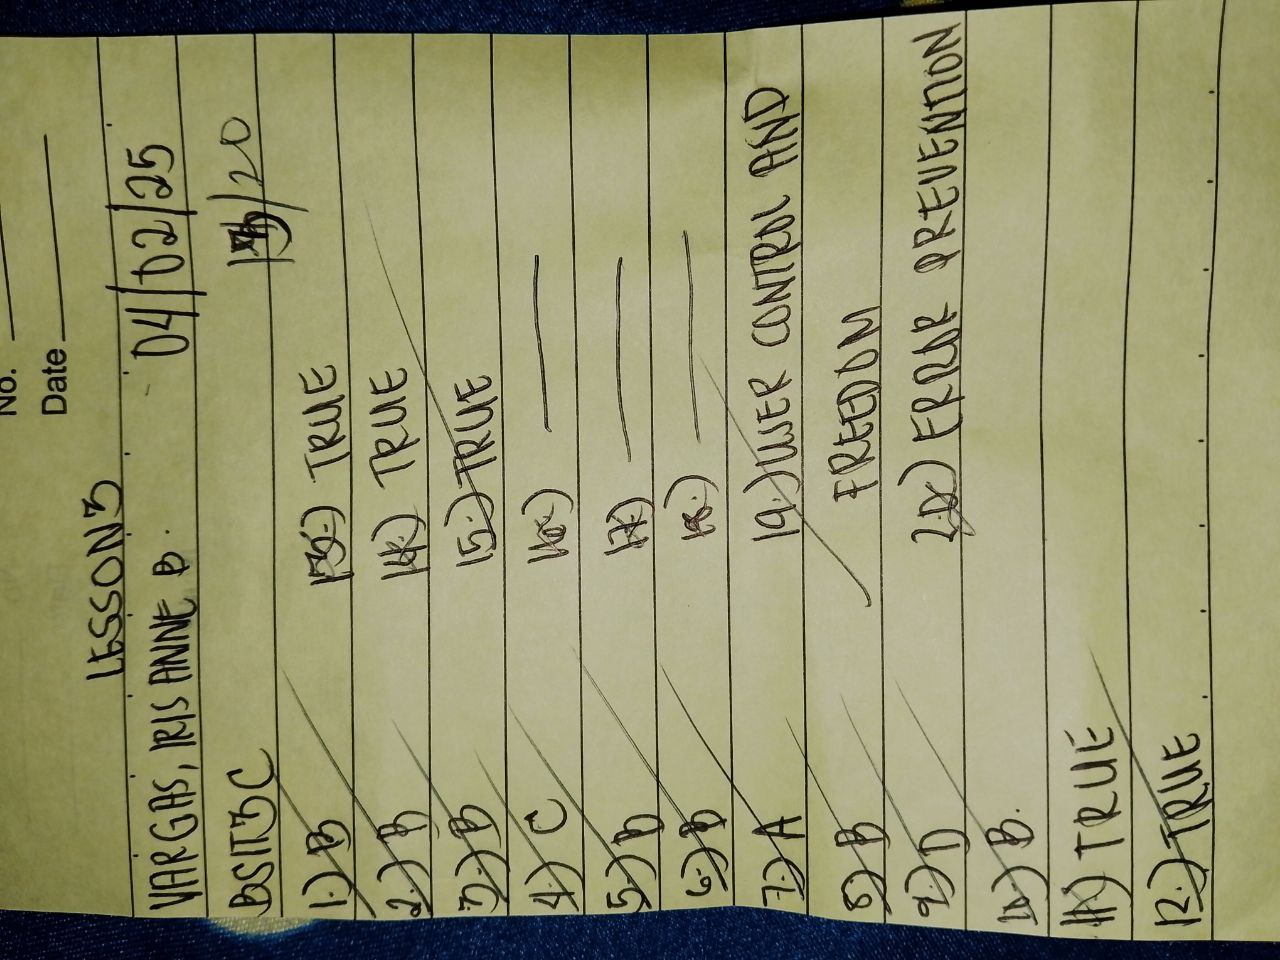 No.
Date
LESSON 3
VARGAS, IRIS ANNE B.
04/02/25
BSIT3C
/20
1.) B
2.) B
3.) B
4.) C
5.) B
6.) B
7.) A
8.) B
9.) D
10.) B.
11.) TRUE
12.) TRUE
13.) TRUE
14.) TRUE
15.) TRUE
16.)
17.)
18.)
19.) USER CONTROL AND
FREEDOM
20.) ERROR PREVENTION